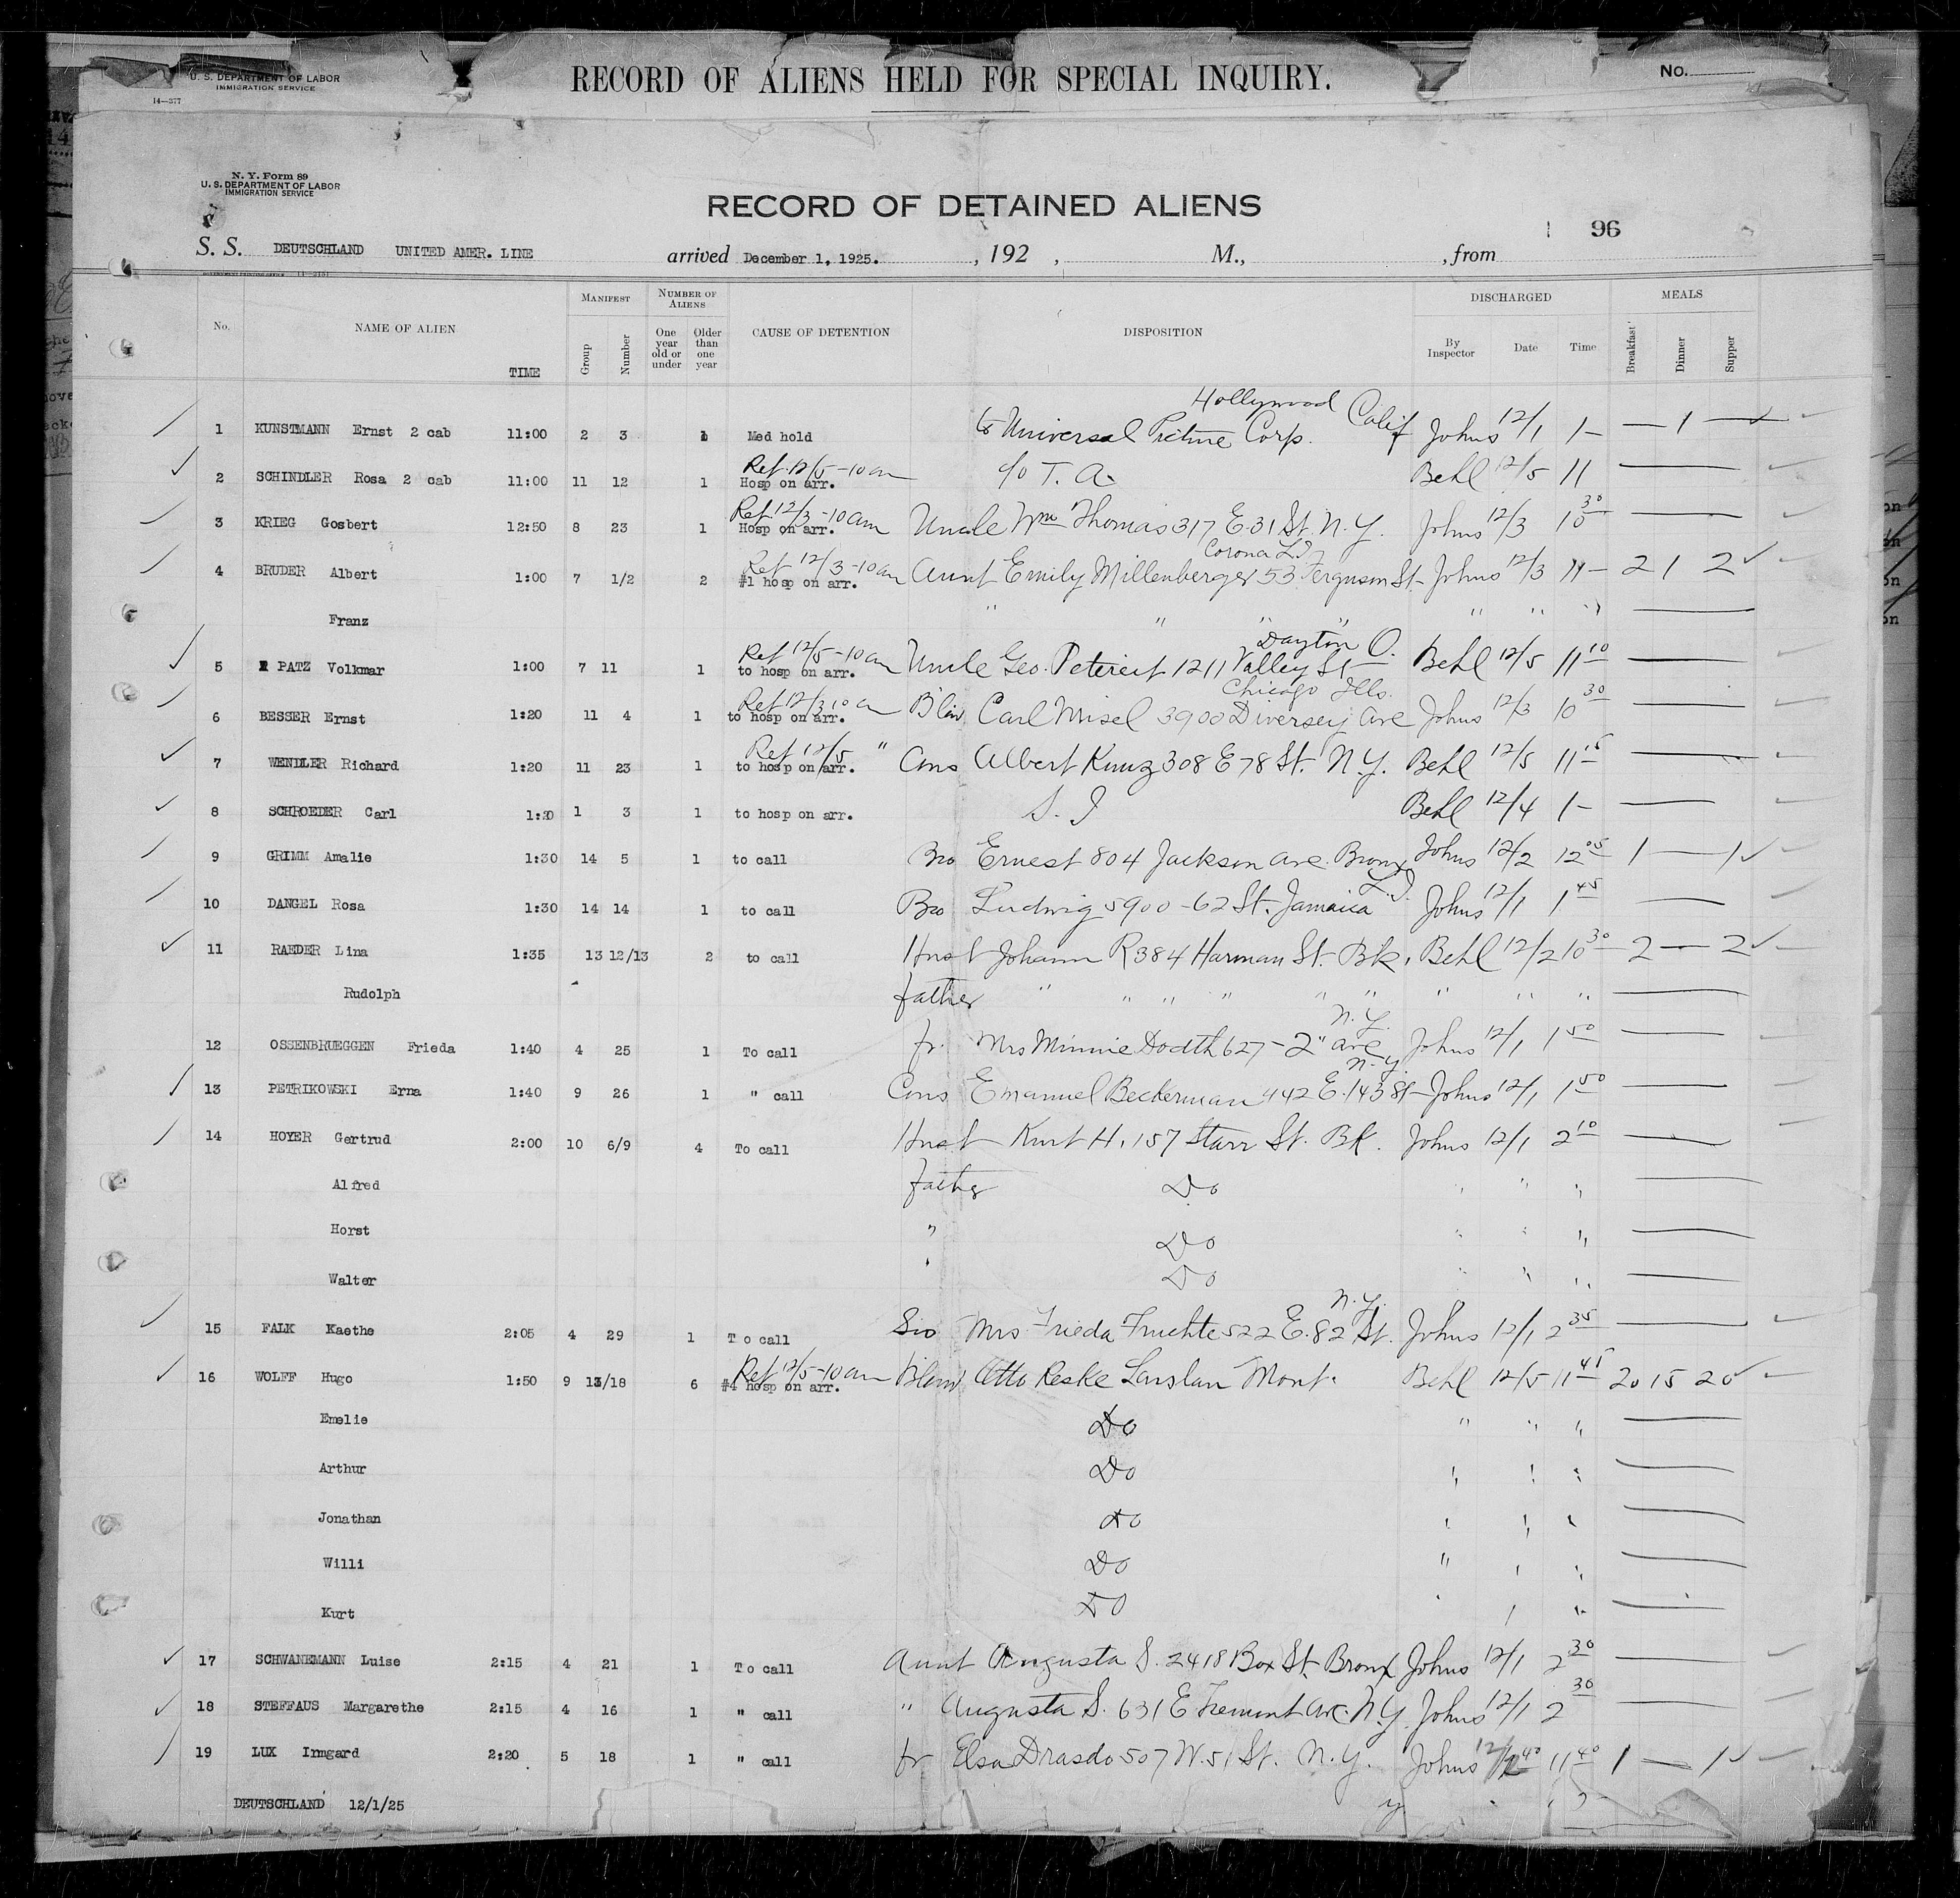 U. S. DEPARTMENT OF LABOR
IMMIGRATION SERVICE
14—377
RECORD OF ALIENS HELD FOR SPECIAL INQUIRY.
No.
N. Y. Form 89
U. S. DEPARTMENT OF LABOR
IMMIGRATION SERVICE
RECORD OF DETAINED ALIENS
96
S. S. DEUTSCHLAND UNITED AMER. LINE arrived December 1, 1925. , 192 , M., , from
No. NAME OF ALIEN TIME MANIFEST Group Number NUMBER OF ALIENS One year old or under Older than one year CAUSE OF DETENTION DISPOSITION DISCHARGED By Inspector Date Time MEALS Breakfast Dinner Supper
Hollywood
1 KUNSTMANN Ernst 2 cab 11:00 2 3 1 Med hold to Universal Picture Corp. Calif Johns 12/1 1— — 1 —
Ret 12/5-10 am
2 SCHINDLER Rosa 2 cab 11:00 11 12 1 Hosp on arr. c/o T. A. Behl 12/5 11
Ret 12/3-10 am
3 KRIEG Gosbert 12:50 8 23 1 Hosp on arr. Uncle Wm Thomas 317 E. 31 St. N. Y. Johns 12/3 10 30
Ret 12/3-10 am Corona L.I.
4 BRUDER Albert 1:00 7 1/2 2 #1 hosp on arr. Aunt Emily Millenberger 53 Ferguson St. Johns 12/3 11— 2 1 2
Franz " " " " " " "
Ret 12/5-10 am Dayton O.
5 PATZ Volkmar 1:00 7 11 1 to hosp on arr. Uncle Geo. Petereit 1211 Valley St Behl 12/5 11 10
Ret 12/3 10 a Chicago Ills.
6 BESSER Ernst 1:20 11 4 1 to hosp on arr. B'law Carl Misel 3900 Diversey Ave Johns 12/3 10 30
Ret 12/5 "
7 WENDLER Richard 1:20 11 23 1 to hosp on arr. Cous Albert Kunz 308 E 78 St. N. Y. Behl 12/5 11 15
8 SCHROEDER Carl 1:20 1 3 1 to hosp on arr. S. I Behl 12/4 1—
9 GRIMM Amalie 1:30 14 5 1 to call Bro Ernest 804 Jackson Ave. Bronx Johns 12/2 12 05 1 — 1
10 DANGEL Rosa 1:30 14 14 1 to call Bro Ludwig 5900-62 St. Jamaica L.I. Johns 12/1 1 45
11 RAEDER Lina 1:35 13 12/13 2 to call Husb Johann R 384 Harman St. Bk. Behl 12/2 10 30 2 — 2
Rudolph father " " " " " " " " "
N.Y.
12 OSSENBRUEGGEN Frieda 1:40 4 25 1 To call fr. Mrs Minnie 627-2" ave Johns 12/1 1 50
N.Y.
13 PETRIKOWSKI Erna 1:40 9 26 1 " call Cous Emanuel Beckerman 442 E. 143 St— Johns 12/1 1 50
14 HOYER Gertrud 2:00 10 6/9 4 To call Husb Kurt H. 157 Starr St. Bk. Johns 12/1 2 10
Alfred father Do " " "
Horst " Do " " "
Walter " Do " " "
N.Y.
15 FALK Kaethe 2:05 4 29 1 To call Sis Mrs Frieda Fruchte 522 E. 82 St. Johns 12/1 2 35
Ret 12/5-10 am
16 WOLFF Hugo 1:50 9 13/18 6 #4 hosp on arr. B'law Otto Reske Mont. Behl 12/5 11 45 20 15 20
Emelie Do " " "
Arthur Do " " "
Jonathan Do " " "
Willi Do " " "
Kurt Do " " "
17 SCHWANEMANN Luise 2:15 4 21 1 To call Aunt Augusta S. 2418 Box St. Bronx Johns 12/1 2 30
18 STEFFAUS Margarethe 2:15 4 16 1 " call " Augusta S. 631 E Tremont Ave. N.Y. Johns 12/1 2 30
19 LUX Irmgard 2:20 5 18 1 " call fr Elsa Drasdo 507 W. 51 St. N. Y. Johns 12/2 11 40 1 — 1
DEUTSCHLAND 12/1/25